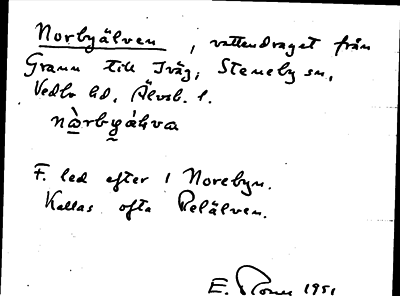 Norbyälven, vattendraget från
Grann till Iväg, Steneby sn,
Vedbo hd, Älvsb. l.
nàrbyálva
F. led efter i Norebyn.
Kallas ofta Relälven.
E. 1951